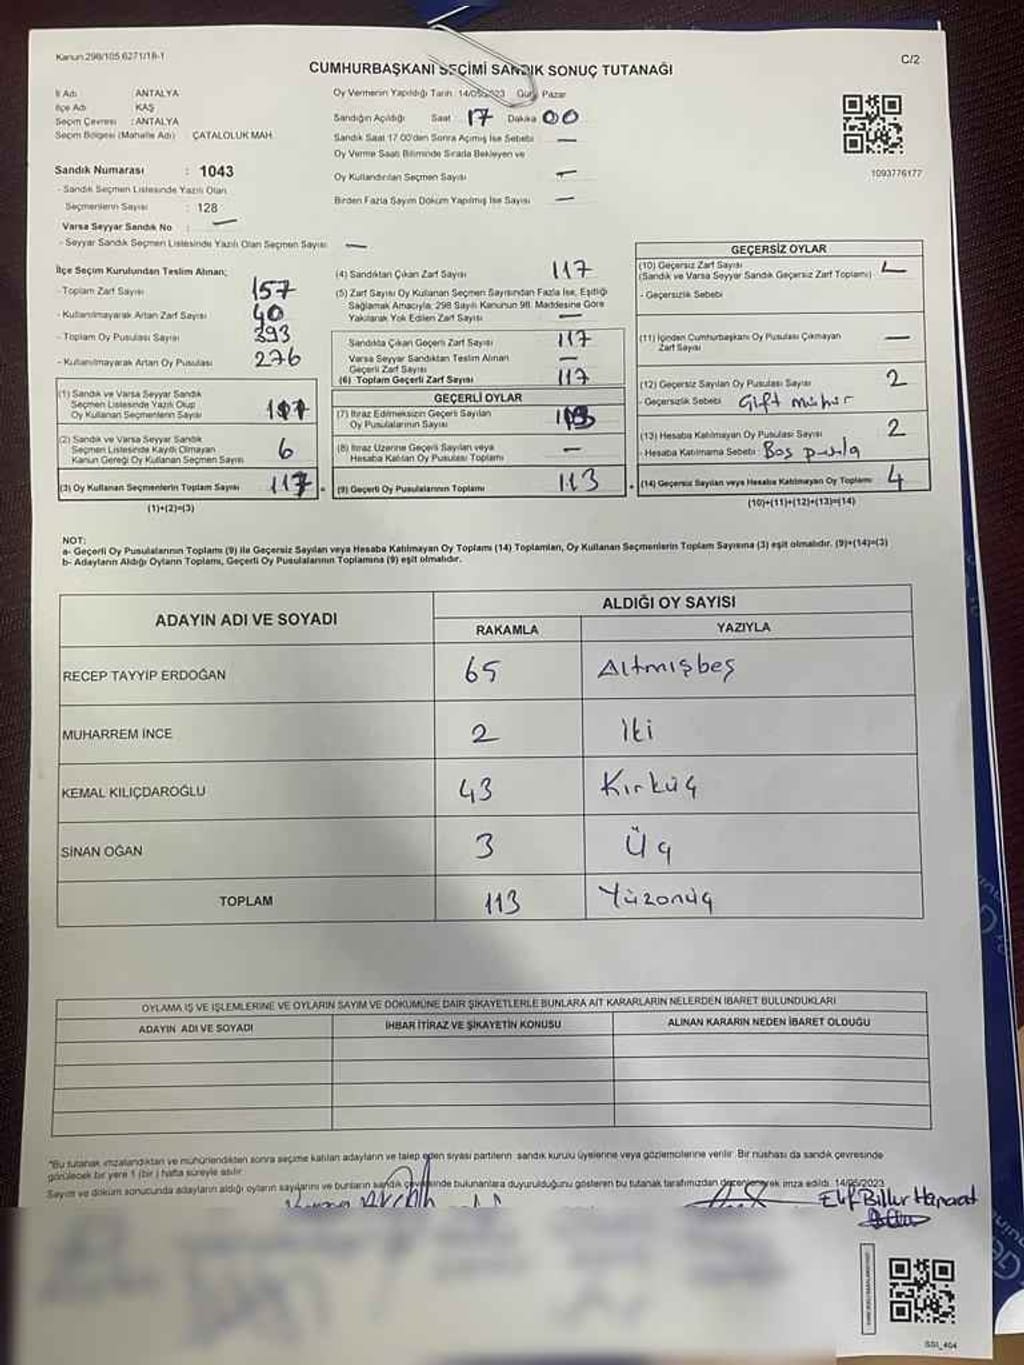 Kanun 298/105 6271/18-1
C/2
CUMHURBAŞKANI SEÇİMİ SANDIK SONUÇ TUTANAĞI
İl Adı : ANTALYA
İlçe Adı : KAŞ
Seçim Çevresi : ANTALYA
Seçim Bölgesi (Mahalle Adı) ÇATALOLUK MAH.
Oy Vermenin Yapıldığı Tarih : 14/05/2023 Gün Pazar
Sandığın Açıldığı Saat 17 Dakika 00
Sandık Saat 17.00'den Sonra Açılmış İse Sebebi —
Oy Verme Saati Bitiminde Sırada Bekleyen ve
Oy Kullandırılan Seçmen Sayısı —
Birden Fazla Sayım Döküm Yapılmış İse Sayısı —
1093776177
Sandık Numarası : 1043
- Sandık Seçmen Listesinde Yazılı Olan
Seçmenlerin Sayısı : 128
Varsa Seyyar Sandık No : —
- Seyyar Sandık Seçmen Listesinde Yazılı Olan Seçmen Sayısı —
İlçe Seçim Kurulundan Teslim Alınan;
- Toplam Zarf Sayısı 157
- Kullanılmayarak Artan Zarf Sayısı 40
- Toplam Oy Pusulası Sayısı 393
- Kullanılmayarak Artan Oy Pusulası 276
(1) Sandık ve Varsa Seyyar Sandık
Seçmen Listesinde Yazılı Olup
Oy Kullanan Seçmenlerin Sayısı
(2) Sandık ve Varsa Seyyar Sandık
Seçmen Listesinde Kaydı Olmayan
Kanun Gereği Oy Kullanan Seçmen Sayısı 6
(3) Oy Kullanan Seçmenlerin Toplam Sayısı 117
(1)+(2)=(3)
(4) Sandıktan Çıkan Zarf Sayısı 117
(5) Zarf Sayısı Oy Kullanan Seçmen Sayısından Fazla İse, Eşitliği
Sağlamak Amacıyla; 298 Sayılı Kanunun 98. Maddesine Göre
Yakılarak Yok Edilen Zarf Sayısı —
Sandıkta Çıkan Geçerli Zarf Sayısı 117
Varsa Seyyar Sandıktan Teslim Alınan
Geçerli Zarf Sayısı —
(6) Toplam Geçerli Zarf Sayısı 117
GEÇERLİ OYLAR
(7) İtiraz Edilmeksizin Geçerli Sayılan
Oy Pusulalarının Sayısı 113
(8) İtiraz Üzerine Geçerli Sayılan veya
Hesaba Katılan Oy Pusulası Toplamı —
(9) Geçerli Oy Pusulalarının Toplamı 113
GEÇERSİZ OYLAR
(10) Geçersiz Zarf Sayısı
(Sandık ve Varsa Seyyar Sandık Geçersiz Zarf Toplamı)
- Geçersizlik Sebebi
(11) İçinden Cumhurbaşkanı Oy Pusulası Çıkmayan
Zarf Sayısı —
(12) Geçersiz Sayılan Oy Pusulası Sayısı 2
- Geçersizlik Sebebi Çift mühür
(13) Hesaba Katılmayan Oy Pusulası Sayısı 2
- Hesaba Katılmama Sebebi Boş pusula
(14) Geçersiz Sayılan veya Hesaba Katılmayan Oy Toplamı 4
(10)+(11)+(12)+(13)=(14)
NOT:
a- Geçerli Oy Pusulalarının Toplamı (9) ile Geçersiz Sayılan veya Hesaba Katılmayan Oy Toplamı (14) Toplamları, Oy Kullanan Seçmenlerin Toplam Sayısına (3) eşit olmalıdır. (9)+(14)=(3)
b- Adayların Aldığı Oyların Toplamı, Geçerli Oy Pusulalarının Toplamına (9) eşit olmalıdır.
ADAYIN ADI VE SOYADI
ALDIĞI OY SAYISI
RAKAMLA YAZIYLA
RECEP TAYYİP ERDOĞAN 65 Altmışbeş
MUHARREM İNCE 2 İki
KEMAL KILIÇDAROĞLU 43 Kırküç
SİNAN OĞAN 3 Üç
TOPLAM 113 Yüzonüç
OYLAMA İŞ VE İŞLEMLERİNE VE OYLARIN SAYIM VE DÖKÜMÜNE DAİR ŞİKAYETLERLE BUNLARA AİT KARARLARIN NELERDEN İBARET BULUNDUKLARI
ADAYIN ADI VE SOYADI İHBAR İTİRAZ VE ŞİKAYETİN KONUSU ALINAN KARARIN NEDEN İBARET OLDUĞU
*Bu tutanak imzalandıktan ve mühürlendikten sonra seçime katılan adayların ve talep eden siyasi partilerin sandık kurulu üyelerine veya gözlemcilerine verilir. Bir nüshası da sandık çevresinde
görülecek bir yere 1 (bir) hafta süreyle asılır.
Sayım ve döküm sonucunda adayların aldığı oyların sayılarını ve bunların sandık çevresinde bulunanlara duyurulduğunu gösteren bu tutanak tarafımızdan düzenlenerek imza edildi. 14/05/2023
Elif Billur Hanaat
SSI_404